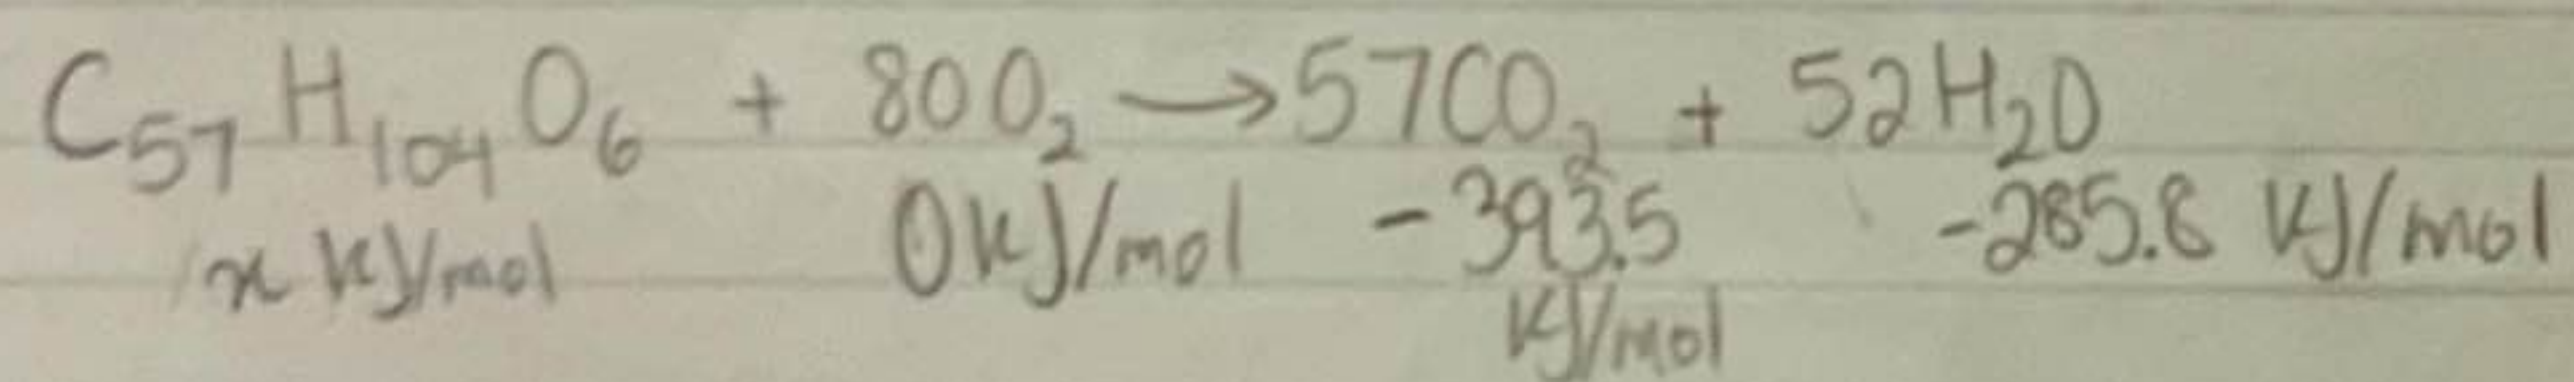 C₅₇H₁₀₄O₆ + 80O₂ → 57CO₂ + 52H₂O
x kJ/mol 0 kJ/mol -393.5 kJ/mol -285.8 kJ/mol